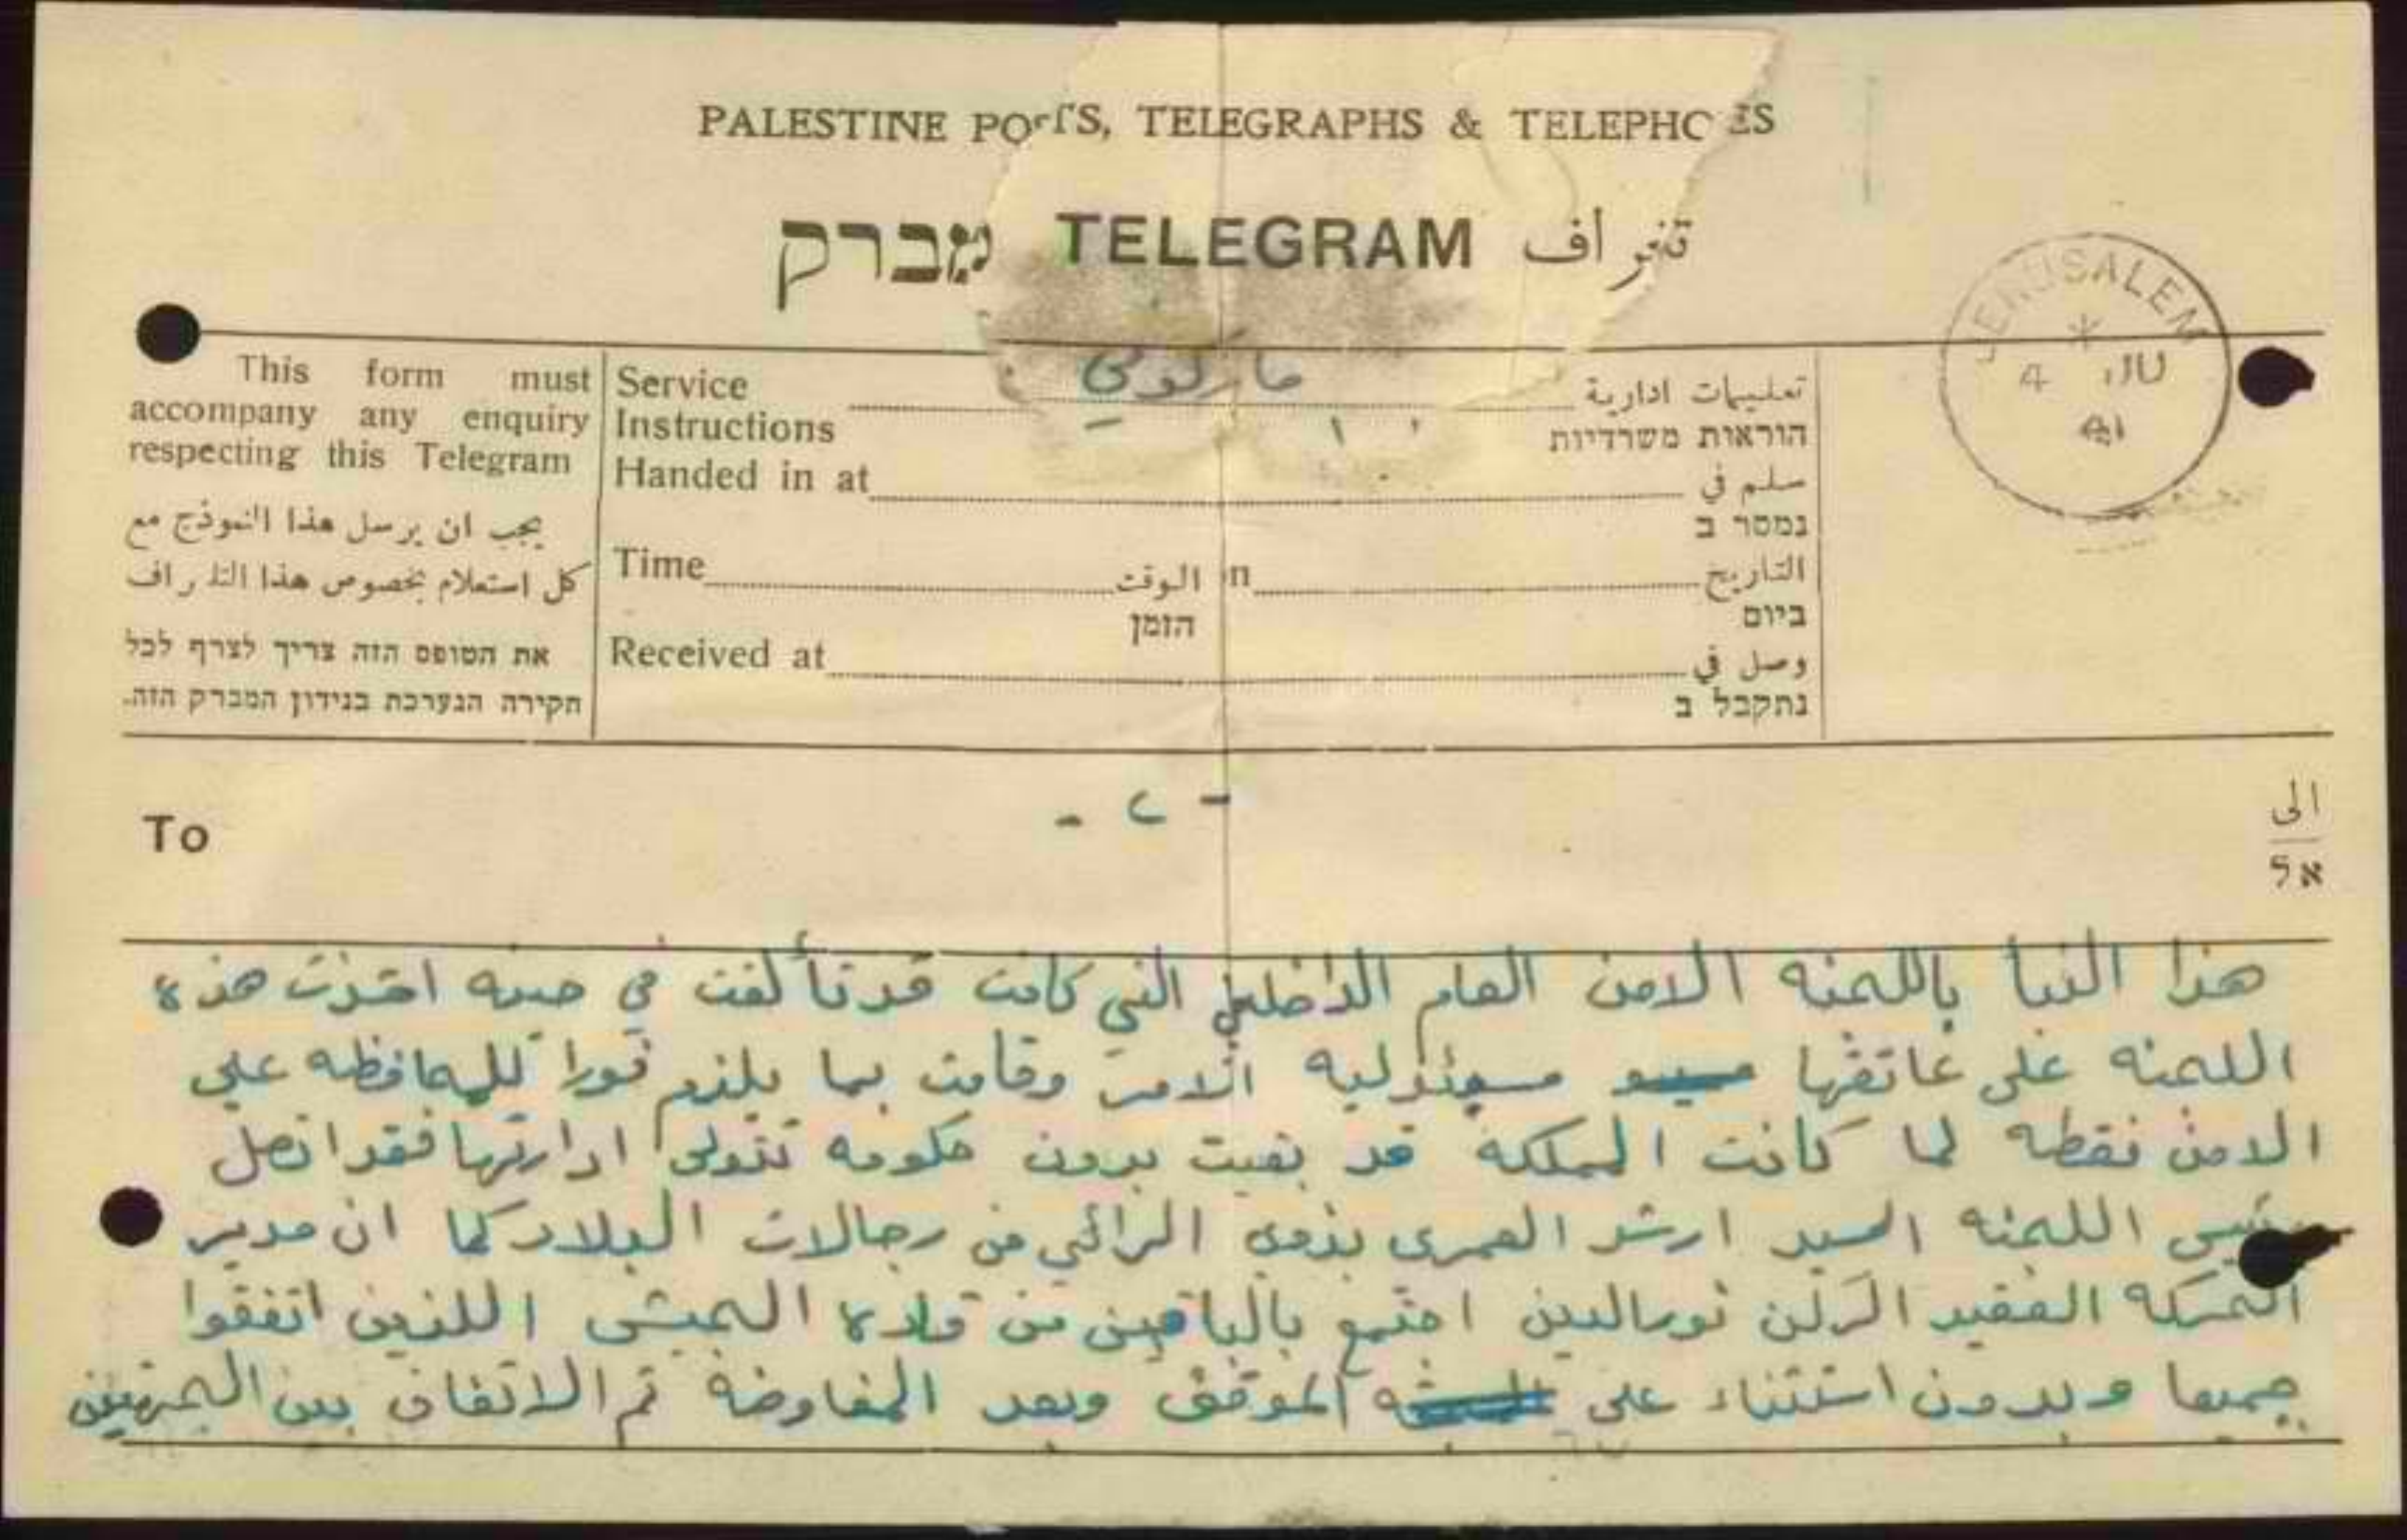 PALESTINE POSTS, TELEGRAPHS & TELEPHO ES
מברק TELEGRAM تلغراف
JERUSALEM
4 JU
41
This form must
accompany any enquiry
respecting this Telegram
يجب ان يرسل هذا النموذج مع
كل استعلام بخصوص هذا التلغراف
את הטופס הזה צריך לצרף לכל
חקירה הנערכת בנידון המברק הזה.
Service ماركوني تعليمات ادارية
Instructions הוראות משרדיות
Handed in at سلم في
נמסר ב
Time الوقت n التاريخ
הזמן ביום
Received at وصل في
נתקבל ב
To - ٢ - الى
אל
هذا النبا باللجنه الامن العام الداخلي التي كانت قد تألفت في حينه اخذت هذه
اللجنه على عاتقها مسئوليه الامن وقامت بما يلزم فورا للمحافظه على
الامن نقطه لما كانت المملكه قد بقيت بدون حكومه تتولى ادارتها فقد اتصل
رئيس اللجنه السيد ارشد العمرى بذوى الرائي من رجالات البلاد كما ان مدير
الحركه العقيد الركن نورالدين اجتمع بالباقين من قاده الجيش اللذين اتفقوا
جميعا وبدون استثناء على الموقف وبعد المفاوضه تم الاتفاق بين الجهتين